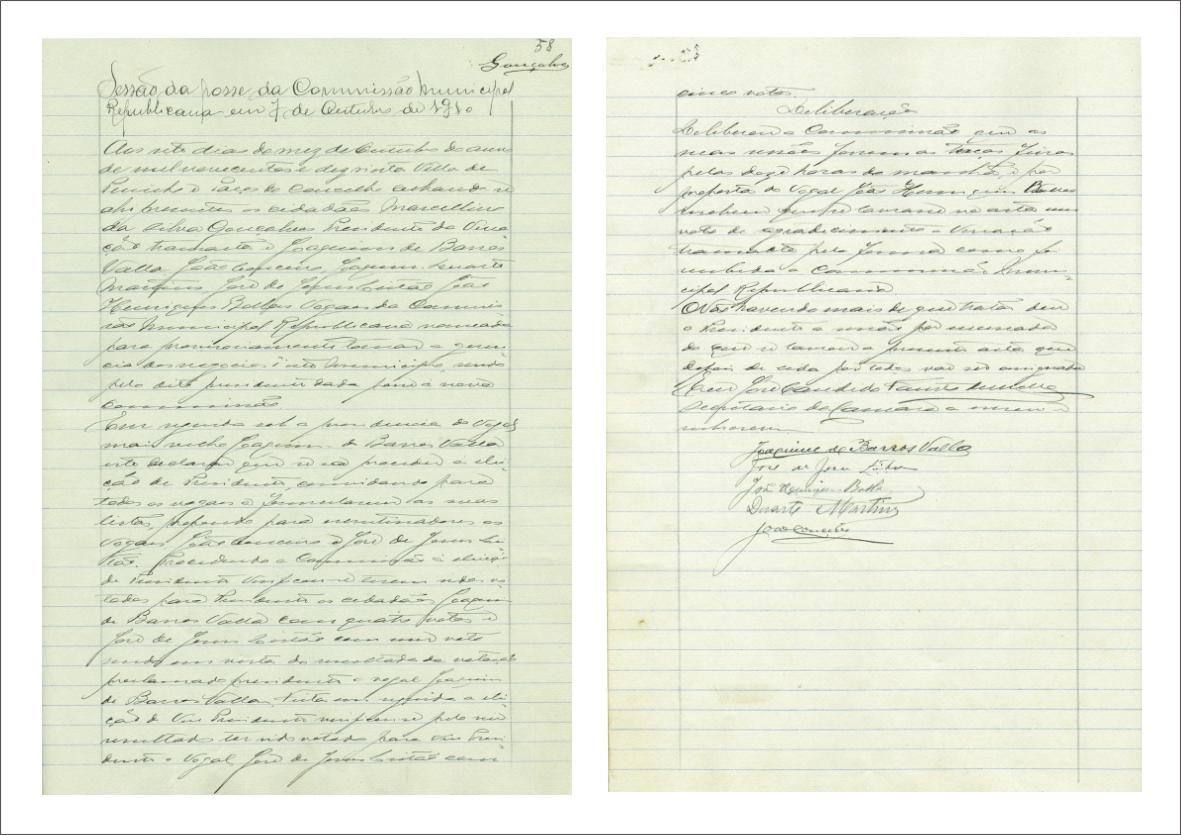 58
Gonçalves
Sessão da posse da Commissão Municipal
Republicana em 7 de Outubro de 1910
Aos sete dias do mez de Outubro do anno
de mil novecentos e dez nesta Villa de
Peniche e Paços do Concelho achando se
ahi presentes os cidadãos Marcellino
da Silva Gonçalves Presidente da Verea
ção transacta e Joaquim de Barros
Valla João Conceiro Joaquim Duarte
Martins José de Jesus Leitão João
Henriques Vogaes da Commis
são Municipal Republicana nomeada
para provisoriamente tomar a geren
cia dos negocios d'este Municipio, sendo
pelo dito presidente dada posse a nova
Commissão
Em seguida sob a presidencia do Vogal
mais velho Joaquim de Barros Valla
este declarou que se ia proceder á elei
ção de Presidente, convidando para
todos os vogaes a formularem as suas
listas, para escrutinadores os
Vogaes João Conceiro e José de Jesus Lei
tão. Procedendo a Commissão á eleição
de Presidente verificou-se terem sido vo
tados para Presidente os cidadãos Joaquim
de Barros Valla com quatro votos e
José de Jesus Leitão com um voto
sendo em vista do resultado da votação
proclamado presidente o vogal Joaquim
de Barros Valla. Feita em seguida a elei
ção de Vice Presidente verificou-se pelo seu
resultado ter sido votado para vice Presi
dente o Vogal José de Jesus Leitão com
cinco votos.
Deliberação
Deliberou a Commissão que as
suas sessões fossem as terças feiras
pelas doze horas da manhã, e por
proposta do Vogal João Henriques
resolveu que se lavrasse na acta um
voto de agradecimento a Vereação
transacta pela forma como foi
recebida a Commissão Muni-
cipal Republicana
Não havendo mais de que tratar deu
o Presidente a sessão por encerrada
do que se lavrou a presente acta que
depois de lida por todos vae ser assignada
E eu José Candido
Secretario da Camara a escrevi e
subscrevi
Joaquim de Barros Valla
José de Jesus Leitão
João Henriques
Duarte Martins
João Conceiro